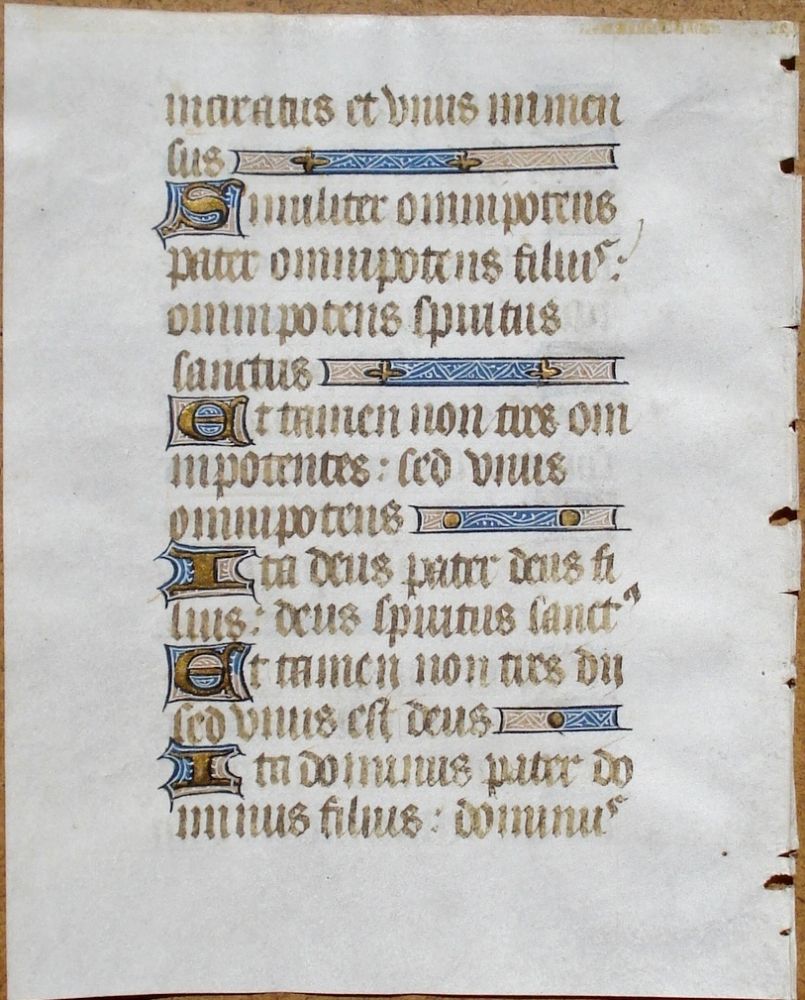 increatus et vnus inmen
sus
Similiter omnipotens
pater omnipotens filius:
omnipotens spiritus
sanctus
Et tamen non tres om
nipotentes: sed vnus
omnipotens
Ita deus pater deus fi
lius: deus spiritus sanctꝰ
Et tamen non tres dii
sed vnus est deus
Ita dominus pater do
minus filius: dominus